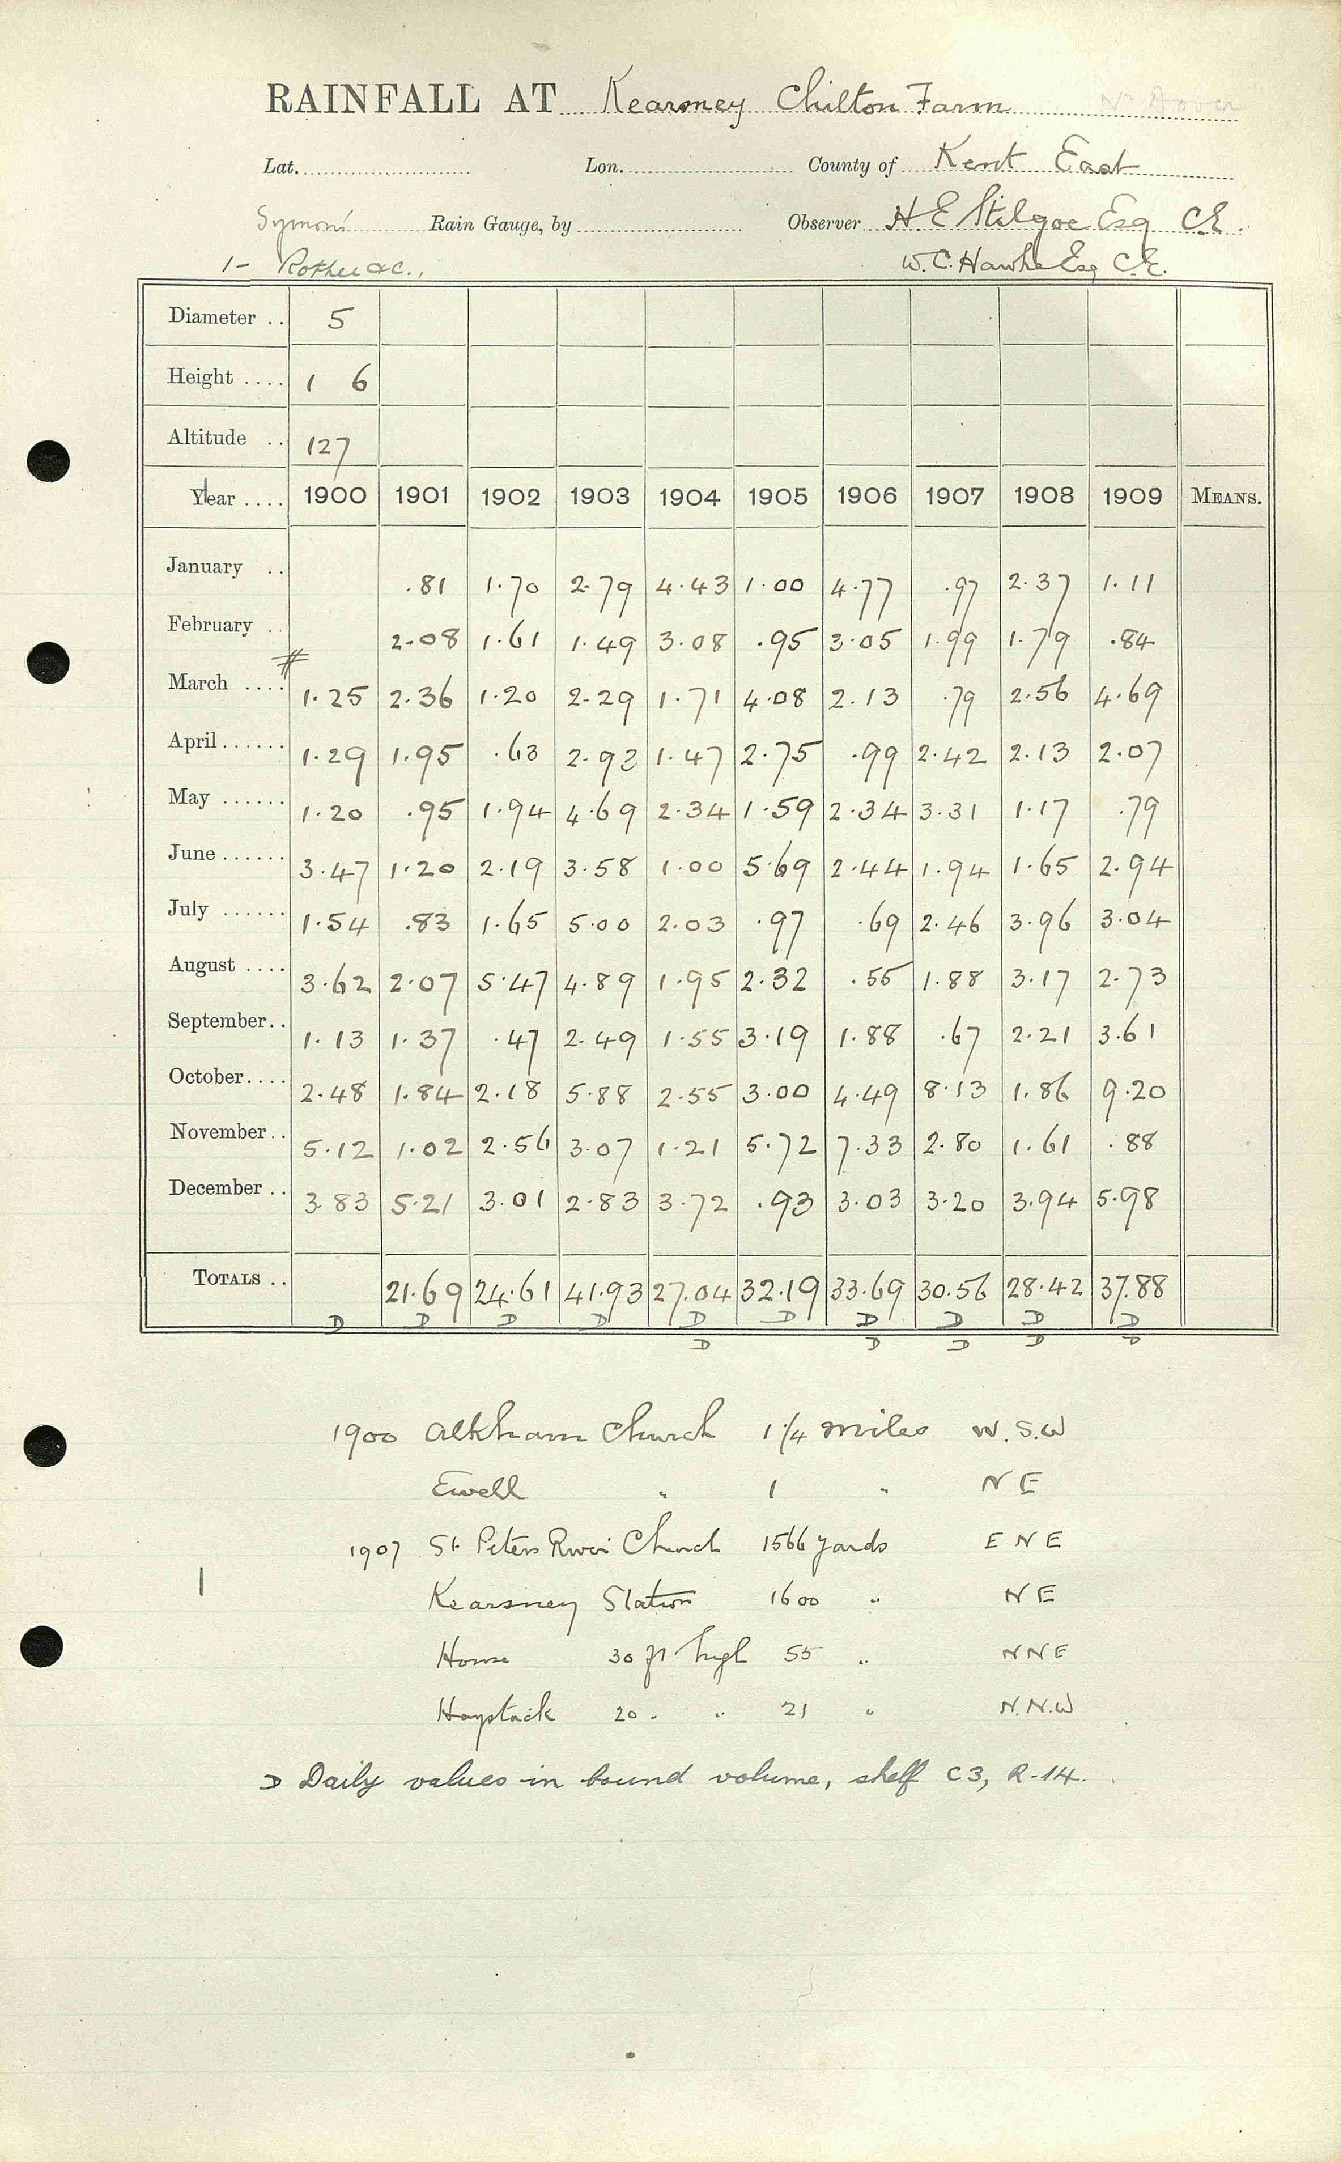 RAINFALL AT Kearsney Chilton Farm Nr Dover
Lat. Lon. County of Kent East
Symons Rain Gauge, by Observer H E Stilgoe Esq CE.
1- Rother &c.,
W. C. Hawke Esq C.E.
Diameter .. 5
Height .... 1 6
Altitude .. 127
Year .... 1900 1901 1902 1903 1904 1905 1906 1907 1908 1909 MEANS.
January .. .81 1.70 2.79 4.43 1.00 4.77 .97 2.37 1.11
February .. 2.08 1.61 1.49 3.08 .95 3.05 1.99 1.79 .84
March .... 1.25 2.36 1.20 2.29 1.71 4.08 2.13 .79 2.56 4.69
April ...... 1.29 1.95 .63 2.92 1.47 2.75 .99 2.42 2.13 2.07
May ...... 1.20 .95 1.94 4.69 2.34 1.59 2.34 3.31 1.17 .79
June ...... 3.47 1.20 2.19 3.58 1.00 5.69 2.44 1.94 1.65 2.94
July ...... 1.54 .83 1.65 5.00 2.03 .97 .69 2.46 3.96 3.04
August .... 3.62 2.07 5.47 4.89 1.95 2.32 .55 1.88 3.17 2.73
September.. 1.13 1.37 .47 2.49 1.55 3.19 1.88 .67 2.21 3.61
October.... 2.48 1.84 2.18 5.88 2.55 3.00 4.49 8.13 1.86 9.20
November.. 5.12 1.02 2.56 3.07 1.21 5.72 7.33 2.80 1.61 .88
December .. 3.83 5.21 3.01 2.83 3.72 .93 3.03 3.20 3.94 5.98
TOTALS .. 21.69 24.61 41.93 27.04 32.19 33.69 30.56 28.42 37.88
D D D D D D D D D D
D D D D D
1900 Alkham Church 1 1/4 miles W.S.W
Ewell " 1 " NE
1907 St Peters River Church 1566 yards E N E
Kearsney Station 1600 " NE
House 30 ft high 55 " NNE
Haystack 20 " " 21 " N.N.W
D Daily values in bound volume, shelf C3, R-14.